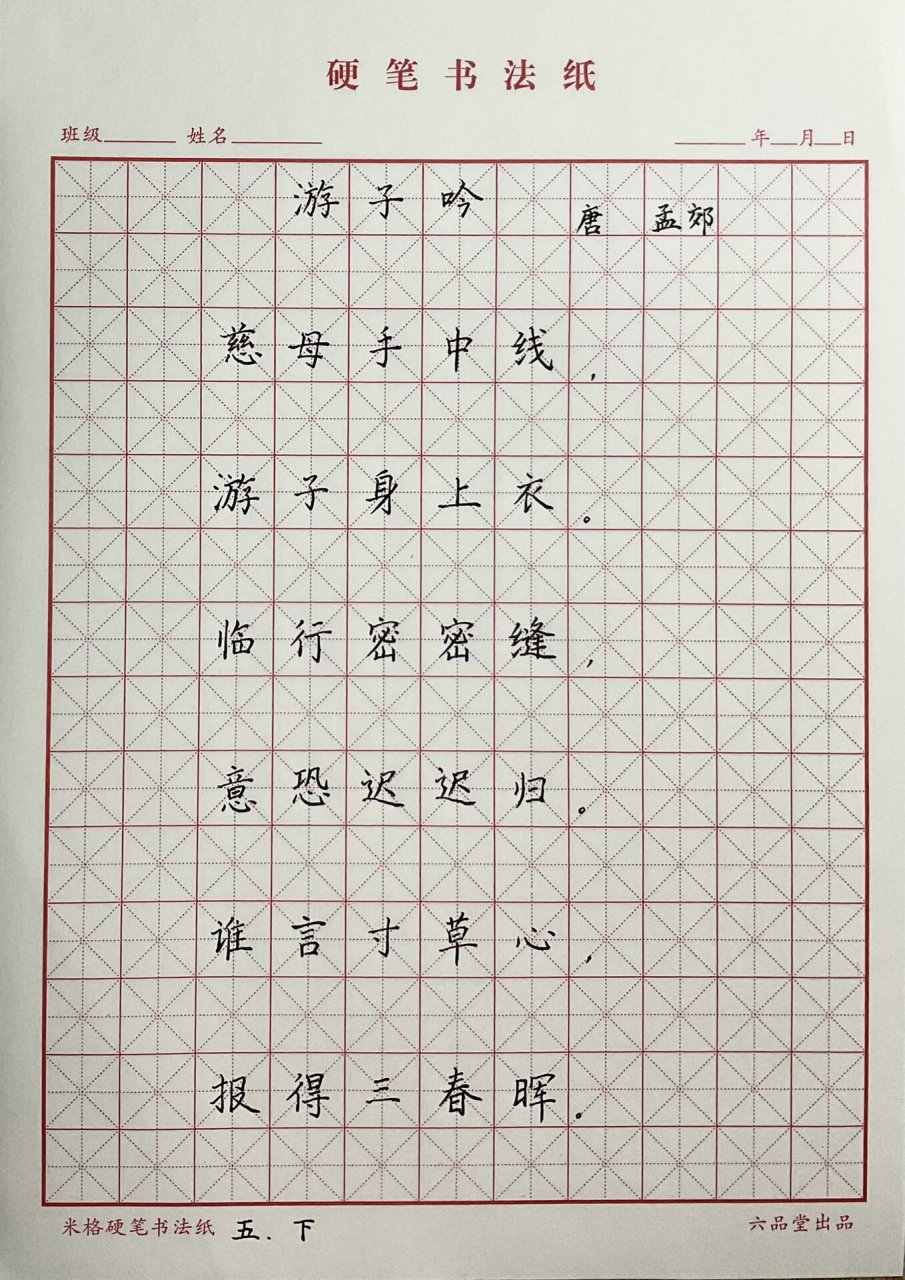 硬笔书法纸
班级 姓名 年 月 日
游子吟
唐 孟郊
慈母手中线，
游子身上衣。
临行密密缝，
意恐迟迟归。
谁言寸草心，
报得三春晖。
米格硬笔书法纸 五.下 六品堂出品